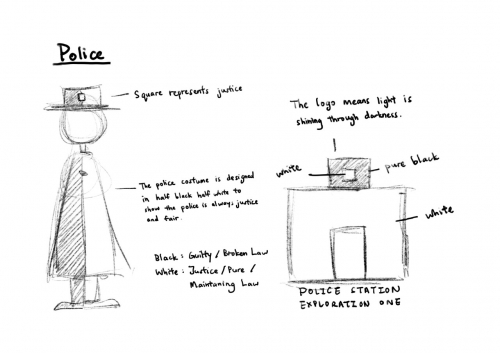 Police
Square represents justice
The police costume is designed
in half black half white to
show the police is always justice
and fair.
Black : Guilty / Broken Law
White : Justice / Pure /
Maintaining Law
The logo means light is
shining through darkness.
white
pure black
white
POLICE STATION
EXPLORATION ONE